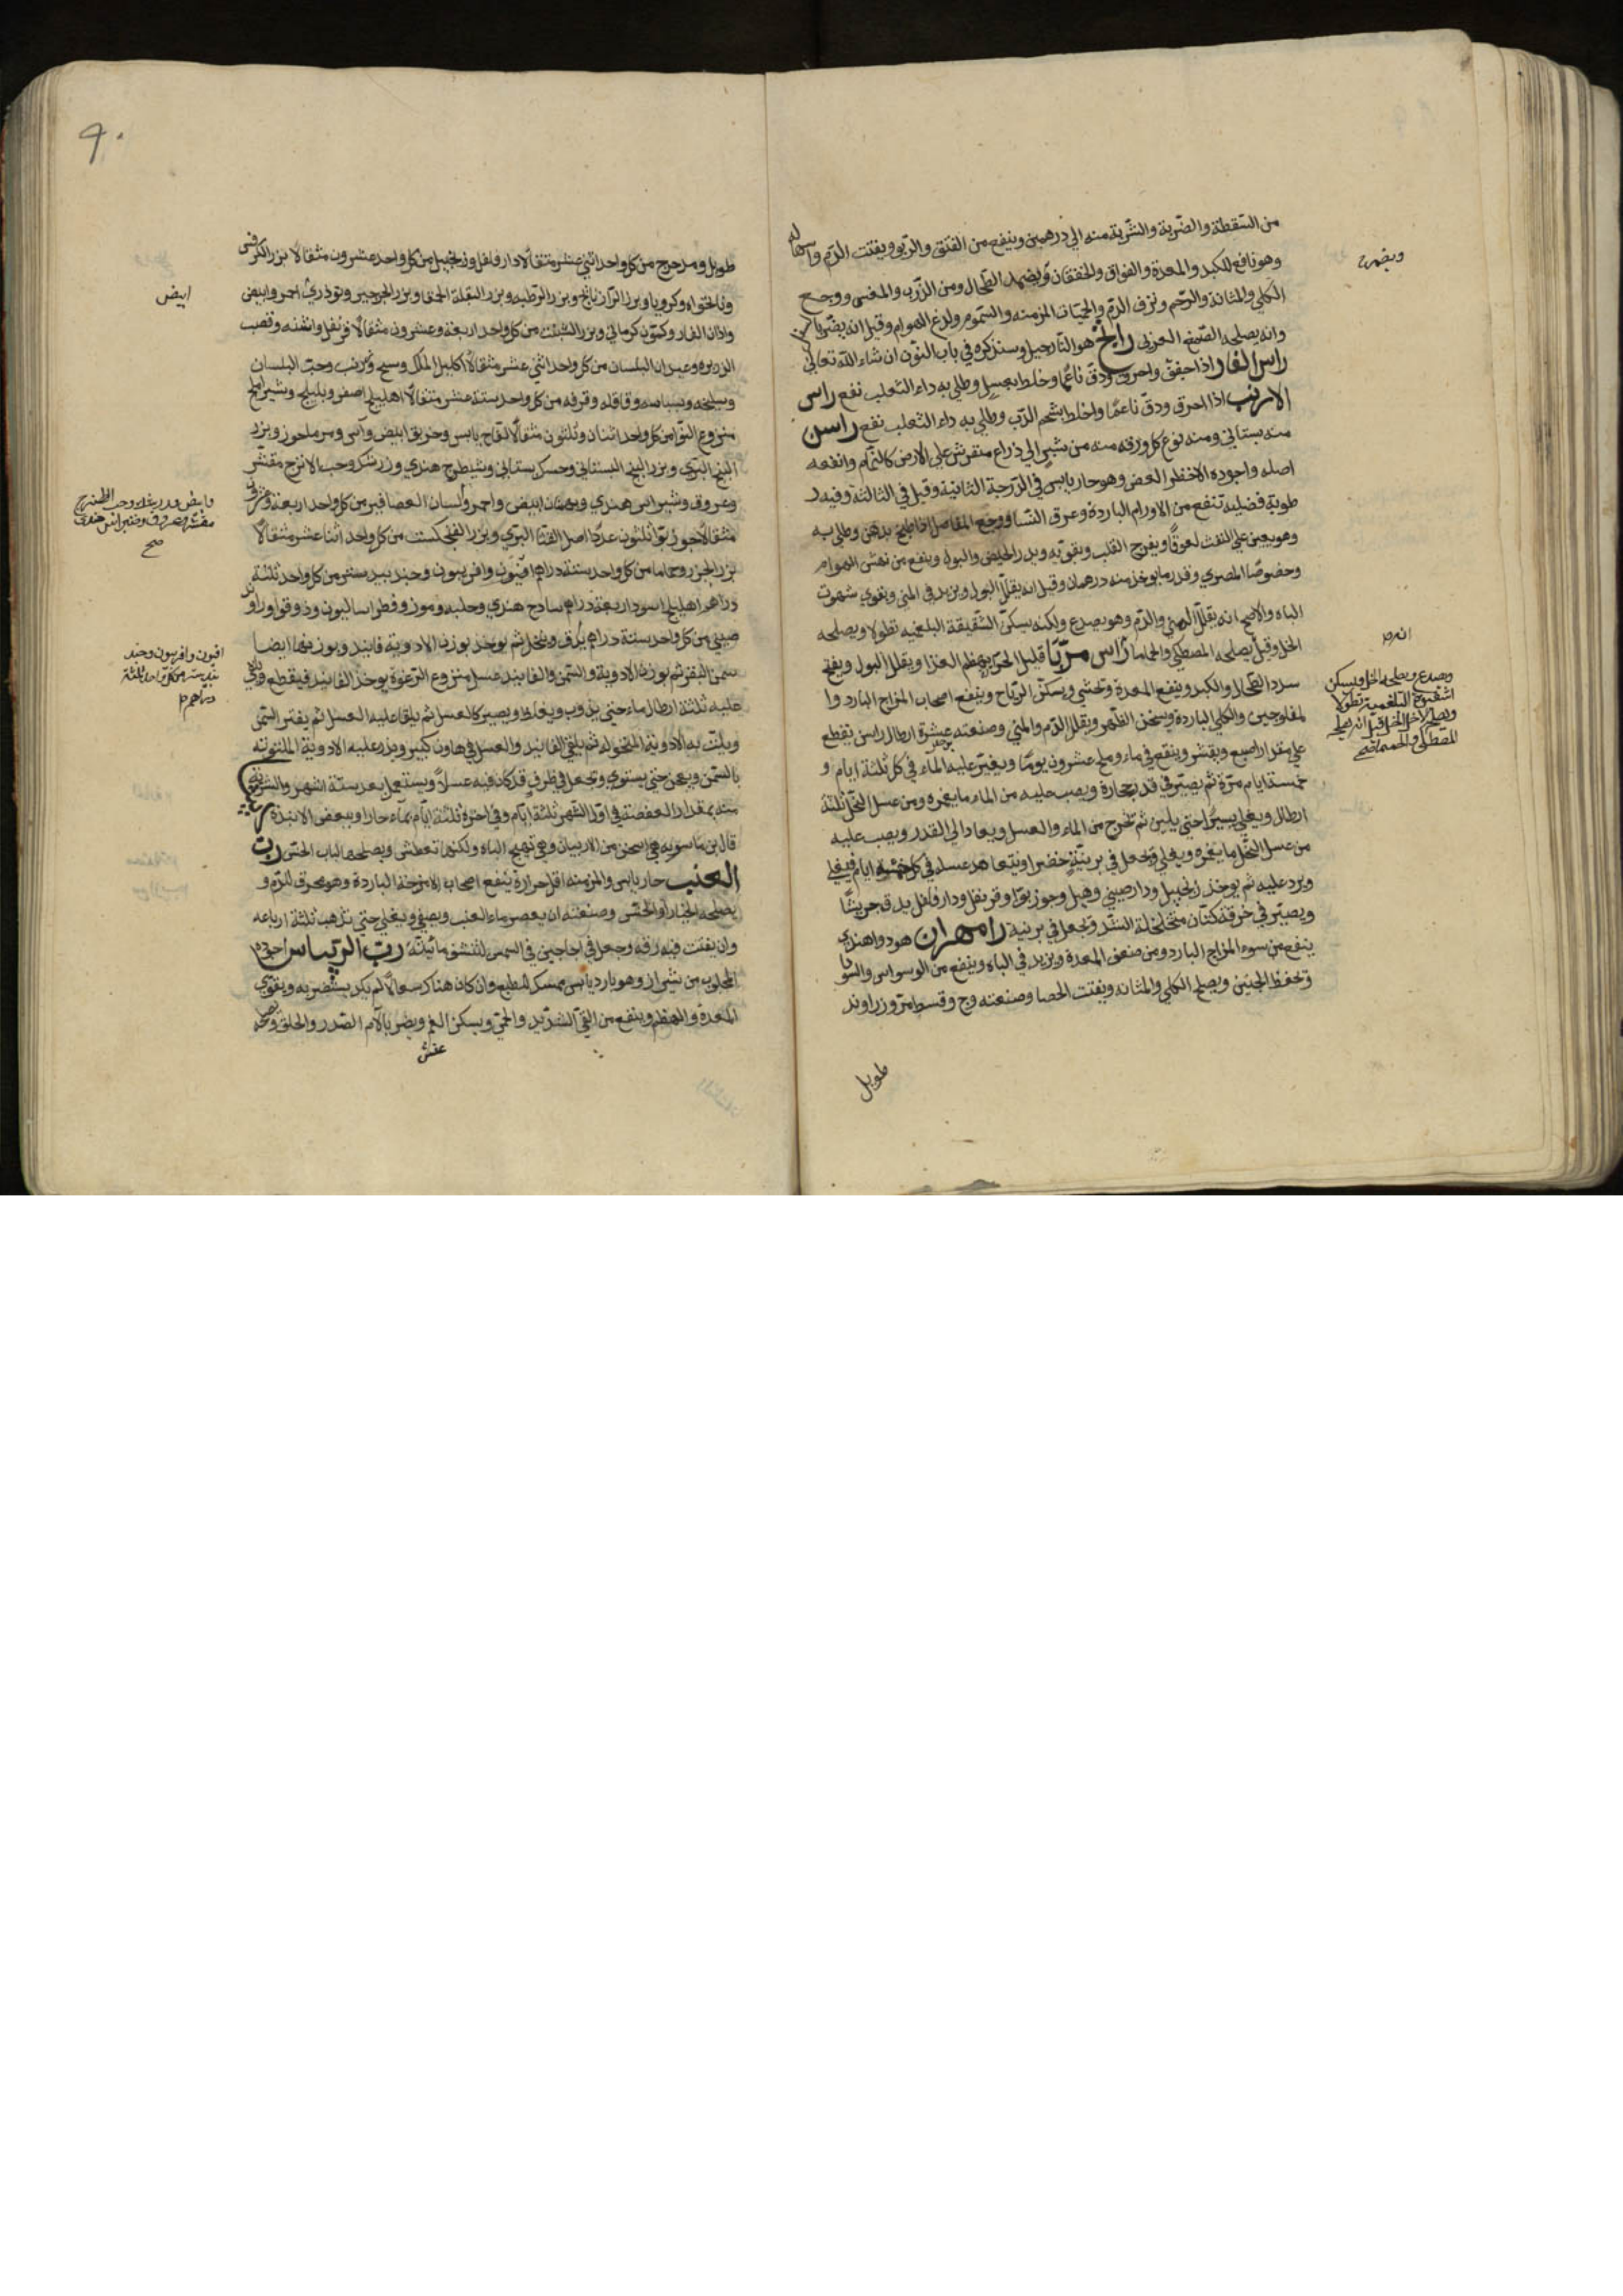 من السقطة والضربة والشربة منه الي درهمين وينفع من الفتق والربو ويفتت الدم واسهاله
وهو نافع للكبد والمعدة والفواق والخفقان ويضمد الطحال ومن الذرب والمغس ووجع
الكلي والمثانة والرحم ونزف الدم والحميات المزمنه والسموم ولدغ الهوام وقيل انه يضر بالراس
وانه يصلحه الصمغ العربي رانج هو النارجيل وسنذكره في باب النون ان شاء الله تعالي
راس الفار اذا جفف واحرق ودق ناعما وخلط بعسل وطلي به داء الثعلب نفع راس
الارنب اذا احرق ودق ناعما واخلط بشحم الدب وطلي به داء الثعلب نفع راسن
منه بستاني ومنه نوع كل ورقه منه من شبر الي ذراع منفرش علي الارض كالنمام وانفعه
اصله واجوده الاخضر الغض وهو حار يابس في الدرجة الثانية وقيل في الثالثة وفيه ر
طوبة فضلية تنفع من الاورام الباردة وعرق النسا ووجع المفاصل اذا طبخ بدهن وطلي به
وهو يعين علي النفث لعوقا ويفرح القلب ويقويه ويدر الحيض والبول وينفع من نهش الهوام
وخصوصا المصري وقدر ما يوخذ منه درهمان وقيل انه يقلل البول ويزيد في المني ويقوي شهوت
الباه والاصح انه يقلل المني والدم وهو يصدع ولكنه يسكن الشقيقة البلغميه نطولا ويصلحه
الخل وقيل يصلحه المصطكي والحاما راسن مربا قليل الحر يهضم الغذا ويقلل البول ويفتح
سدد الطحال والكبد وينفع المعدة وتحشي ويسكن الرياح وينفع اصحاب المزاج البارد وا
لمفلوجين والكلي الباردة ويسخن الظهر ويقلل الدم والمني وصنعته عشرة ارطال راسن يقطع
علي مقدار اصبع ويقشر وينقع في ماء وملح عشرون يوما ويغير عليه الماء في كل ثلثة ايام و
خمسة ايام مرة ثم يصير في قدر حجارة ويصب عليه من الماء ما يغمره ومن عسل النحل ثلثة
ارطال ويغلي يسيرا حتي يلين ثم تخرج من الماء والعسل ويعاد الي القدر ويصب عليه
من عسل النحل ما يغمره ويغلي ويجعل في برنية خضرا ويتعاهد عسله في كل خمسة ايام فيغلي
ويرد عليه ثم يوخذ زنجبيل ودارصيني وهيل وجوز بوا وقرنفل ودارفلفل يدق جريشا
ويصير في خرقة كتان متخلخلة الشد وتجعل في برنية رامهران هو دوا هندي
ينفع من سوء المزاج البارد ومن ضعف المعدة ويزيد في الباه وينفع من الوسواس والسودا
وتحفظ الجنين ويصلح الكلي والمثانه ويفتت الحصا وصنعته وج وقسط مر وزراوند
طويل
ويضمد
انه
وصدع ويصلحه الخل ويسكن
البلغمية نطولا
٩٠
طويل ومر حرج من كل واحد اثني عشر مثقالا دارفلفل وزنجبيل من كل واحد عشرون مثقالا بزر الكرفس
ونانخواه وكرويا وبزر الرازيانج وبزر الرطبه وبزر البقلة الحمقا وبزر الجرجير وتوذري احمر وابيض
واذان الفار وكمون كرماني وبزر الشبث من كل واحد اربعة وعشرون مثقالا قرنفل واشنه وقصب
الذريره وعيدان البلسان من كل واحد اثني عشر مثقالا اكليل الملك وسيح وكرنب وحب البلسان
وسليخه وبسباسه وقاقله وقرفه من كل واحد ستة عشر مثقالا اهليلج اصفر وبليلج وشير املج
منزوع النوا من كل واحد اثنان وثلثون مثقالا لقاح يابس وخربق ابيض وآس ومر ماحوز وبزر
البنج البري وبزر البنج البستاني وحسك بستاني وشيطرج هندي وزرشك وحب الاترج مقشر
وعروق وشبراس هندي وبهمنان ابيض واحمر ولسان العصافير من كل واحد اربعة وعشرون
مثقالا جوز بوا ثلثون عددا اصل القثا البري وبزر الفنجكست من كل واحد اثنا عشر مثقالا
بزر الجزر وحماما من كل واحد ستة دراهم افيون وافربيون وجندبيدستر من كل واحد ثلثة
دراهم اهليلج اسود اربعة دراهم ساذج هندي وحلبه وموز وفطراساليون ودوقوا وراوند
صيني من كل واحد ستة دراهم يدق وينخل ثم يوخذ بوزن الادوية فانيذ وبوزنها ايضا
سمن البقر ثم بوزن الادوية والسمن والفانيذ عسل منزوع الرغوة يوخذ الفانيذ فيقطع ويلقي
عليه ثلثة ارطال ماء حتي يذوب ويغلظ ويصير كالعسل ثم يلقا عليه العسل ثم يفتر السمن
ويلت به الادوية المنخوله ثم يلقي الفانيذ والعسل في هاون كبير ويذر عليه الادوية الملتوته
بالسمن ويعجن حتي يستوي وتجعل في ظرف قد كان فيه عسل ويستعمل بعد ستة اشهر والشربة
منه بمقدار العفصة في اول الشهر ثلثة ايام وفي اخره ثلثة ايام بماء حار او ببعض الانبذة
قال بن ماسويه هي اسخن من الاربيان وهي تهيج الباه ولكنها تعطش ويصلحها لباب الخس رب
العنب حار يابس والمزمنه اقل حرارة ينفع اصحاب الامزجة الباردة وهو محرق للدم و
يصلحه الخيار او الخس وصنعته ان يعصر ماء العنب ويصفي ويغلي حتي تذهب ثلثة ارباعه
وان بقيت فيه رقه وجعل في اجاجين في الشمس لتنشف مائيته رب الريباس اجوده
المجلوب من شيراز وهو بارد يابس ممسك للطبع وان كان هناك سعال لم يكد يستضر به ويقوي
المعدة والهضم وينفع من القي الشديد والحمي ويسكن الغم ويضر بآلام الصدر والحلق
ابيض
وحب الاترج
صح
افيون وافربيون وجند
بيدستر من كل واحد ثلثة
دراهم